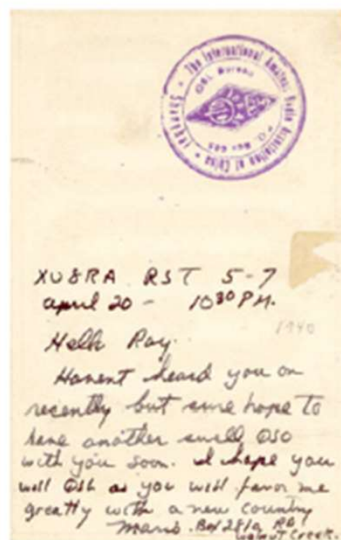 The International Amateur Radio Association of China
* Shanghai *
QSL Bureau
P.O. Box 685
XU8RA RST 5-7
april 20 - 10³⁰ P.M.
1940
Hello Ray.
Havent heard you on
recently but sure hope to
have another swell QSO
with you soon. I hope you
will QSL as you will favor me
greatly with a new country
Mario. Box 281a RD
Walnut Creek.